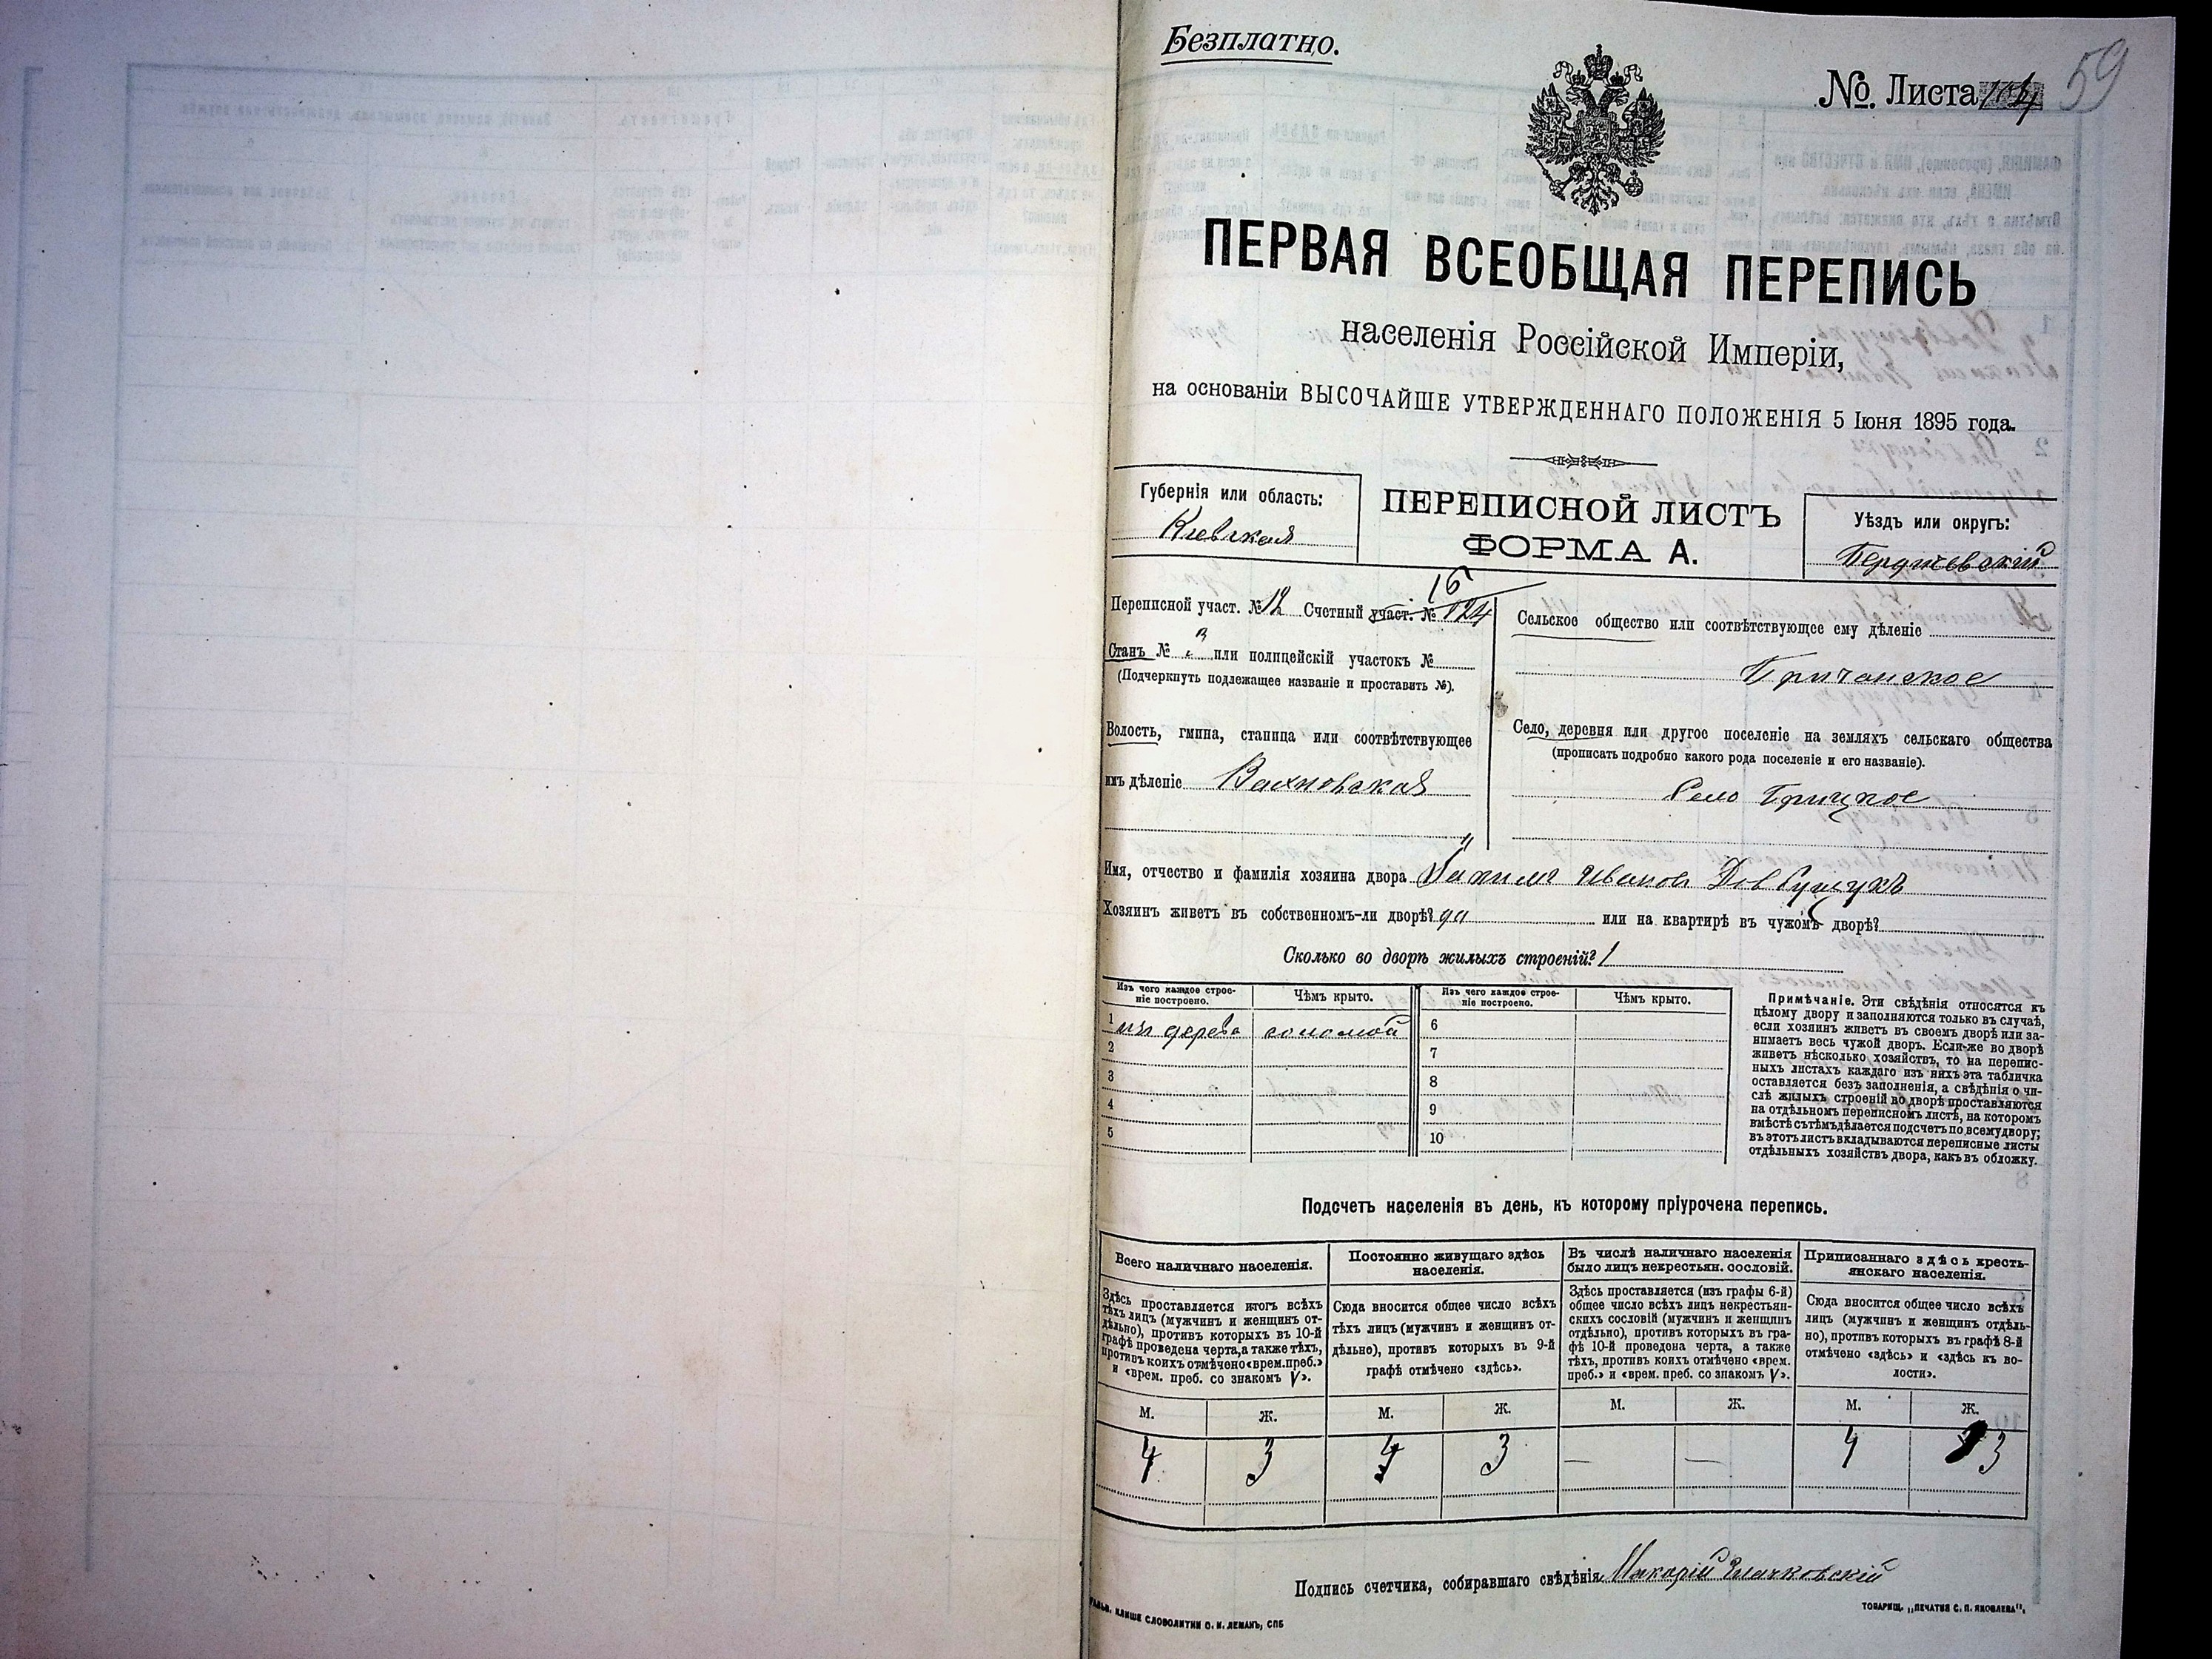 Безплатно.
№ Листа 104
59
ПЕРВАЯ ВСЕОБЩАЯ ПЕРЕПИСЬ
населенія Россійской Имперіи,
на основаніи ВЫСОЧАЙШЕ УТВЕРЖДЕННАГО ПОЛОЖЕНІЯ 5 Іюня 1895 года.
Губернія или область:
Кіевская
ПЕРЕПИСНОЙ ЛИСТЪ
ФОРМА А.
Уѣздъ или округъ:
Бердичевскій
Переписной участ. № 12 Счетный участ. № 124
15
Станъ № 2 или полицейскій участокъ №
(Подчеркнуть подлежащее названіе и проставить №).
Волость, гмина, станица или соотвѣтствующее
имъ дѣленіе Вахновская
Сельское общество или соотвѣтствующее ему дѣленіе
Село, деревня или другое поселеніе на земляхъ сельскаго общества
(прописать подробно какого рода поселеніе и его названіе).
Село
Имя, отчество и фамилія хозяина двора Иванов
Хозяинъ живетъ въ собственномъ-ли дворѣ? да или на квартирѣ въ чужомъ дворѣ?
Сколько во дворѣ жилыхъ строеній? 1
Изъ чего каждое строе-
ніе построено.
Чѣмъ крыто.
Изъ чего каждое строе-
ніе построено.
Чѣмъ крыто.
1 изъ дерева соломой 6
2 7
3 8
4 9
5 10
Примѣчаніе. Эти свѣдѣнія относятся къ
цѣлому двору и заполняются только въ случаѣ,
если хозяинъ живетъ въ своемъ дворѣ или за-
нимаетъ весь чужой дворъ. Если-же во дворѣ
живетъ нѣсколько хозяйствъ, то на перепис-
ныхъ листахъ каждаго изъ нихъ эта табличка
оставляется безъ заполненія, а свѣдѣнія о чи-
слѣ жилыхъ строеній во дворѣ проставляются
на отдѣльномъ переписномъ листѣ, на которомъ
вмѣстѣ съ тѣмъ дѣлается подсчетъ по всему двору;
въ этотъ листъ вкладываются переписные листы
отдѣльныхъ хозяйствъ двора, какъ въ обложку.
Подсчетъ населенія въ день, къ которому пріурочена перепись.
Всего наличнаго населенія.
Здѣсь проставляется итогъ всѣхъ
тѣхъ лицъ (мужчинъ и женщинъ от-
дѣльно), противъ которыхъ въ 10-й
графѣ проведена черта, а также тѣхъ,
противъ коихъ отмѣчено «врем. преб.»
и «врем. преб. со знакомъ V».
Постоянно живущаго здѣсь
населенія.
Сюда вносится общее число всѣхъ
тѣхъ лицъ (мужчинъ и женщинъ от-
дѣльно), противъ которыхъ въ 9-й
графѣ отмѣчено «здѣсь».
Въ числѣ наличнаго населенія
было лицъ некрестьян. сословій.
Здѣсь проставляется (изъ графы 6-й)
общее число всѣхъ лицъ некрестьян-
скихъ сословій (мужчинъ и женщинъ
отдѣльно), противъ которыхъ въ гра-
фѣ 10-й проведена черта, а также
тѣхъ, противъ коихъ отмѣчено «врем.
преб.» и «врем. преб. со знакомъ V».
Приписаннаго здѣсь кресть-
янскаго населенія.
Сюда вносится общее число всѣхъ
лицъ (мужчинъ и женщинъ отдѣль-
но), противъ которыхъ въ графѣ 8-й
отмѣчено «здѣсь» и «здѣсь къ во-
лости».
М. Ж. М. Ж. М. Ж. М. Ж.
4 3 4 3 — — 4 3
Подпись счетчика, собиравшаго свѣдѣнія
КЛИШЕ СЛОВОЛИТНИ О. И. ЛЕМАНЪ, СПБ
ТОВАРИЩ. „ПЕЧАТНЯ С. П. ЯКОВЛЕВА".